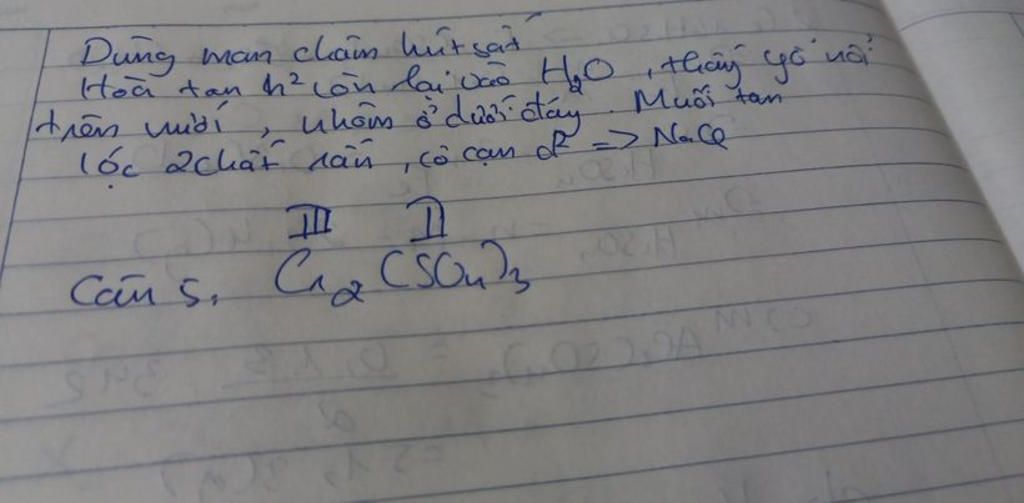 Dùng nam châm hút sắt
Hoà tan h² còn lại vào H₂O, thấy gỗ nổi
trên nước, nhôm ở dưới đáy. Muối tan
lọc 2 chất rắn, cô cạn d² => NaCl
III II
Câu 5, Cr₂(SO₄)₃